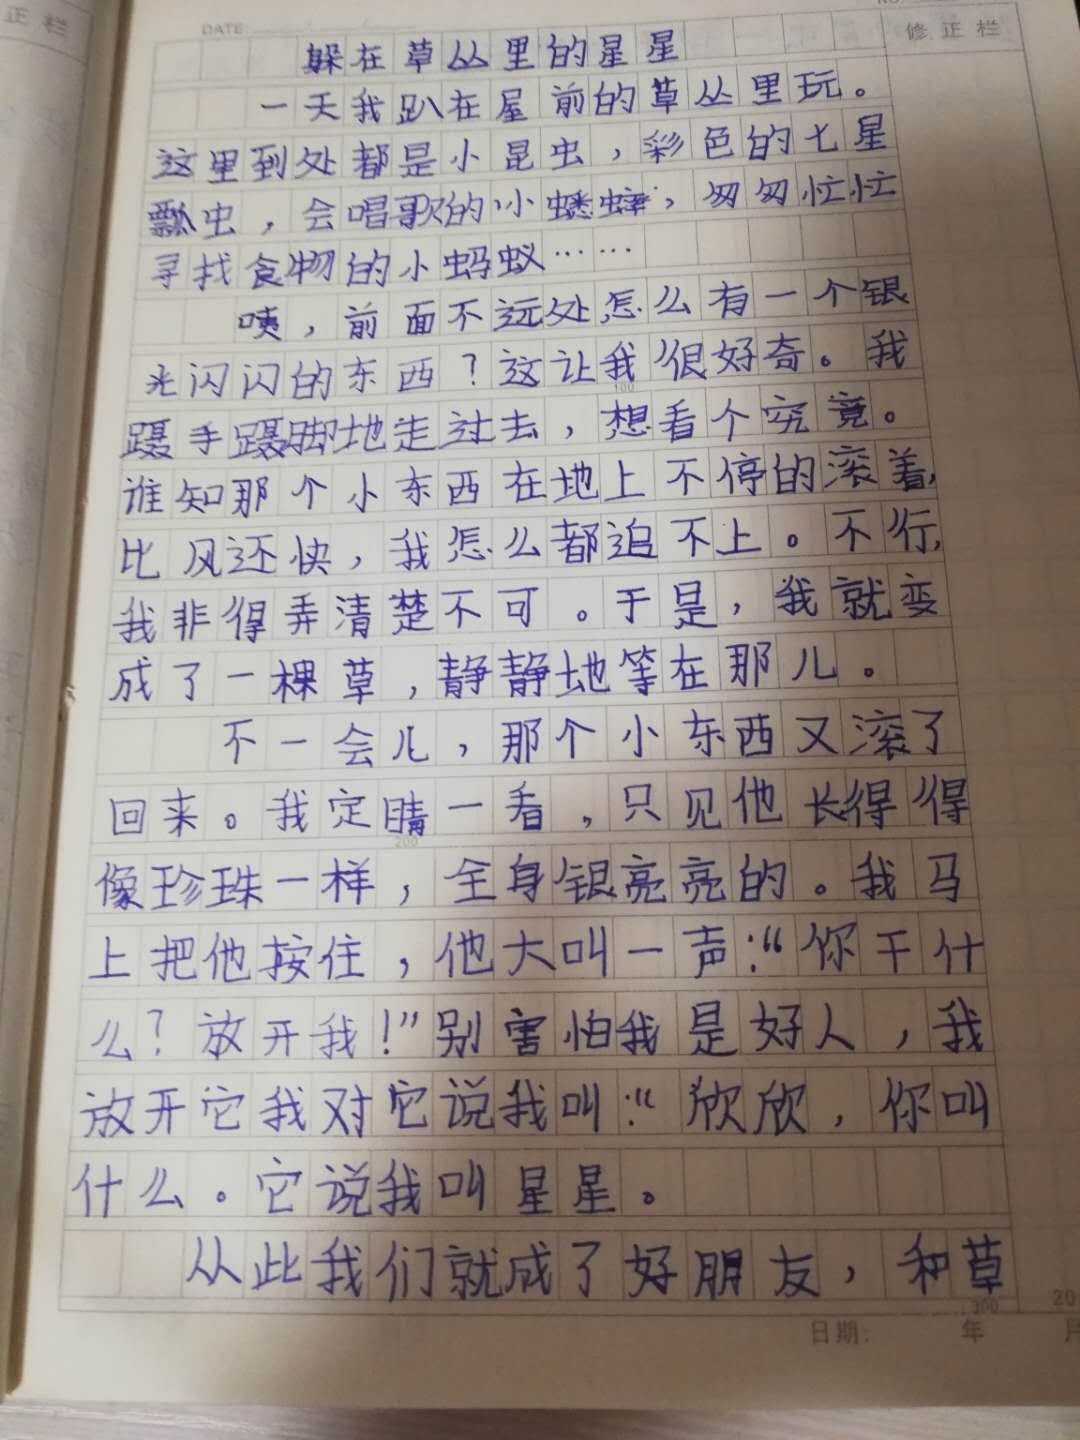 正栏
DATE
NO.
修正栏
躲在草丛里的星星
一天我趴在屋前的草丛里玩。
这里到处都是小昆虫，彩色的七星
瓢虫，会唱歌的小蟋蟀，匆匆忙忙
寻找食物的小蚂蚁……
咦，前面不远处怎么有一个银
光闪闪的东西？这让我很好奇。我
100
蹑手蹑脚地走过去，想看个究竟。
谁知那个小东西在地上不停的滚着，
比风还快，我怎么都追不上。不行，
我非得弄清楚不可。于是，我就变
成了一棵草，静静地等在那儿。
不一会儿，那个小东西又滚了
回来。我定睛一看，只见他长得得
200
像珍珠一样，全身银亮亮的。我马
上把他按住，他大叫一声：“你干什
么？放开我！”别害怕我是好人，我
放开它我对它说我叫：“欣欣，你叫
什么。它说我叫星星。
从此我们就成了好朋友，和草
300
日期： 年 月
20